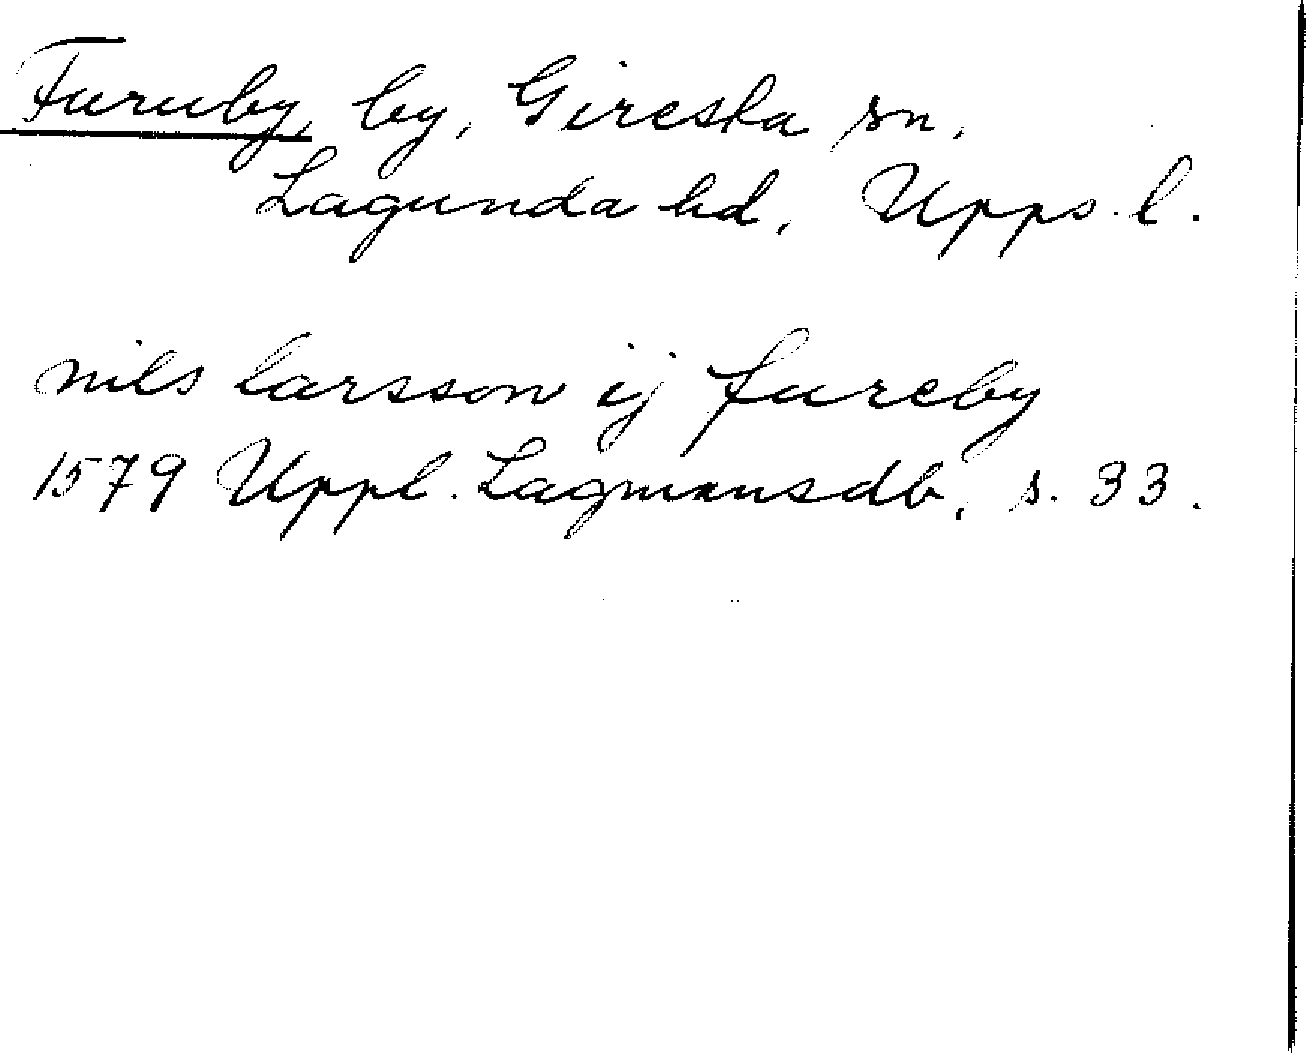 Furuby, by, Giresta sn.
Lagunda hd, Upps. l.
nils larsson ij fureby
1579 Uppl. Lagmansdb, s. 33.